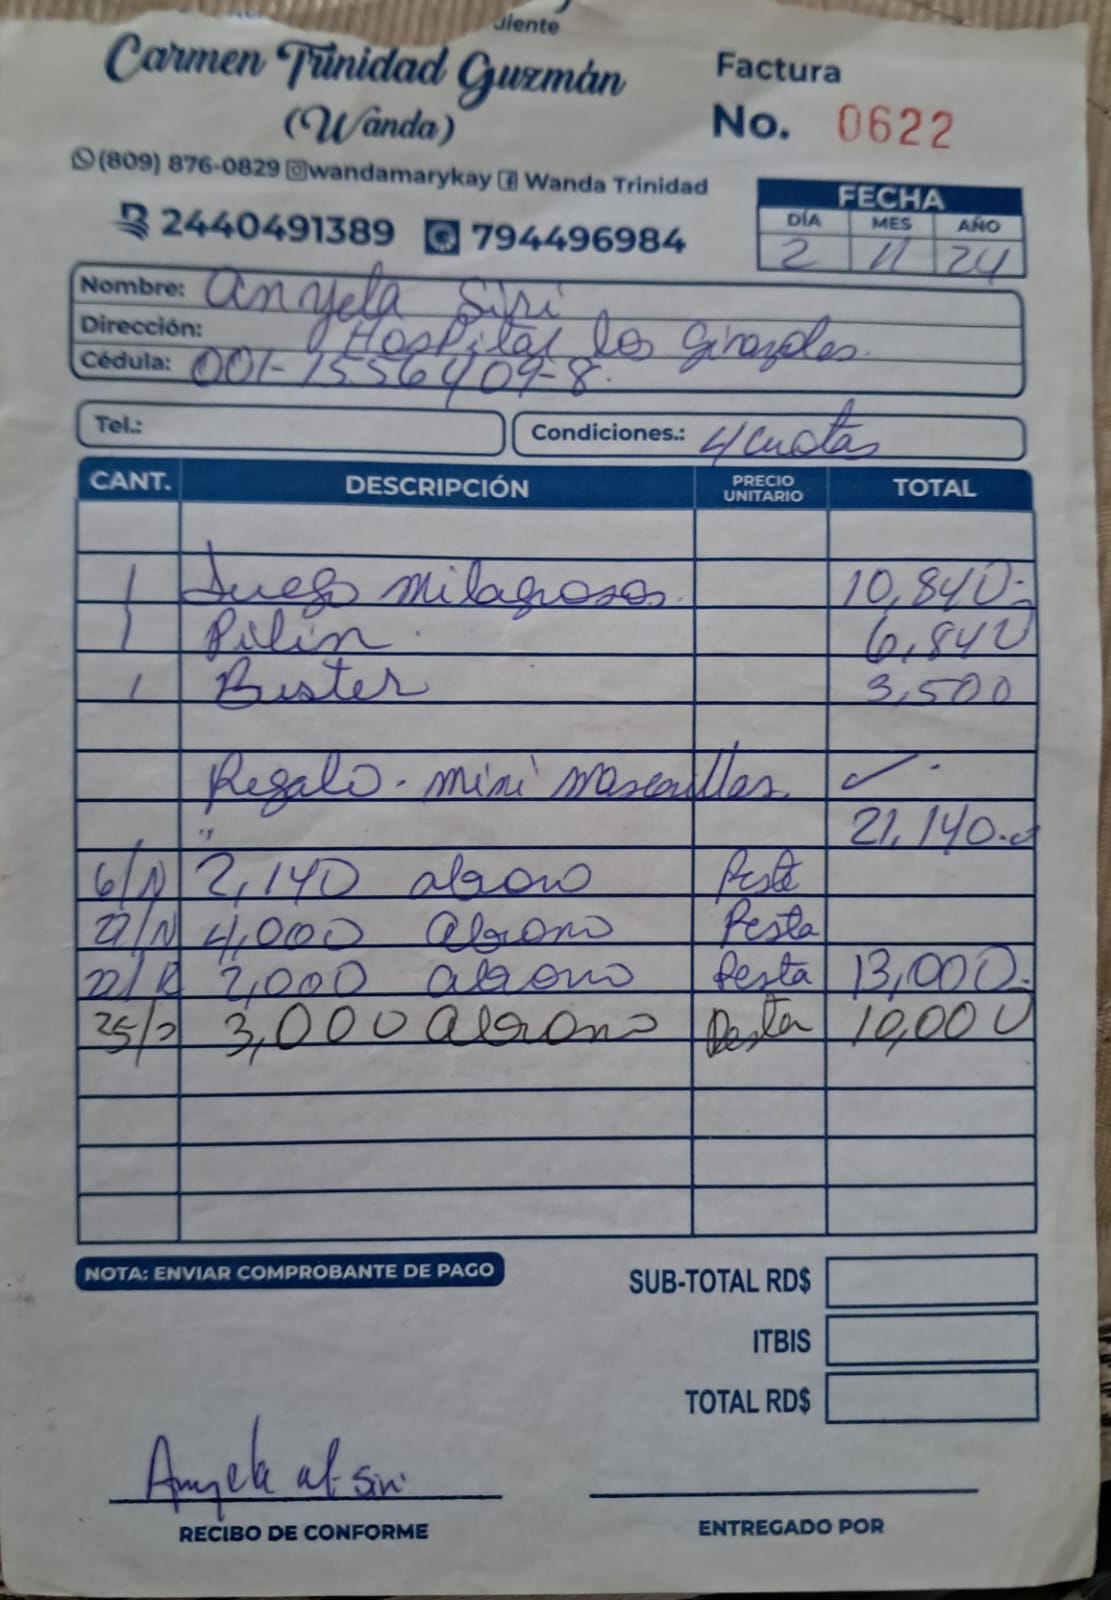 diente
Carmen Trinidad Guzmán
(Wanda)
Factura
No. 0622
(809) 876-0829 wandamarykay Wanda Trinidad
2440491389 794496984
FECHA
DÍA MES AÑO
2 11 24
Nombre: Angela Siri
Dirección: Hospital los Girasoles.
Cédula: 001-1556409-8.
Tel.:
Condiciones.: 4 cuotas
CANT. DESCRIPCIÓN PRECIO UNITARIO TOTAL
1 Juego milagrosos. 10,840.-
1 6,840
1 Buster 3,500
Regalo. mini mascarillas. ✓.
" 21,140.
6/N 2,140 abono Resta
27/N 4,000 abono Resta
22/ 2,000 abono Resta 13,000.
25/ 3,000 abono Resta 10,000
NOTA: ENVIAR COMPROBANTE DE PAGO
SUB-TOTAL RD$
ITBIS
TOTAL RD$
Angela Siri
RECIBO DE CONFORME
ENTREGADO POR